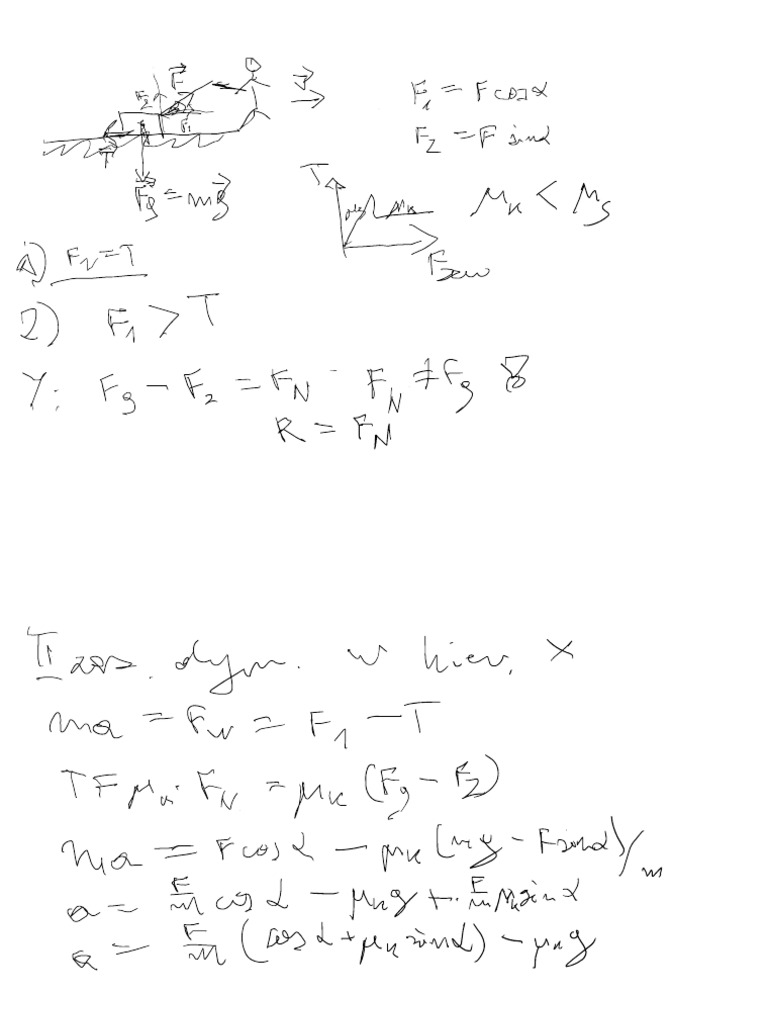 F₁ = F cos α
F₂ = F sin α
F₂ F⃗ v⃗
F₁
T⃗
F⃗g = mg⃗
T μs μk μk < μs
Fzew
1) F_N = T
2) F₁ > T
Y: Fg − F₂ = F_N − F_N ≠ Fg !
R = F_N
II zas. dyn. w kier. x
ma = F_w = F₁ − T
T F μk · F_N = μk (Fg − F₂)
ma = F cos α − μk (mg − F sin α) / m
a = F/m cos α − μk g + F/m μk sin α
a = F/m (cos α + μk sin α) − μk g